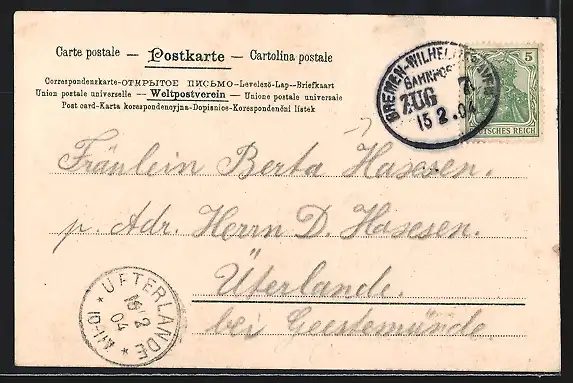 Carte postale — Postkarte — Cartolina postale
Correspondenzkarte-ОТКРЫТОЕ ПИСЬМО-Levelező-Lap-Briefkaart
Union postale universelle — Weltpostverein — Unione postale universale
Post card-Karta korespondencyjna-Dopisnice-Korespondenční lístek
BREMEN-WILHELMSHAVEN
BAHNPOST
ZUG
15 2.04
5
DEUTSCHES REICH
Fräulein Berta Hasesen.
p. Adr. Herrn D. Hasesen.
Üterlande.
bei Geestemünde.
* UETERLANDE *
2
04
10-11V